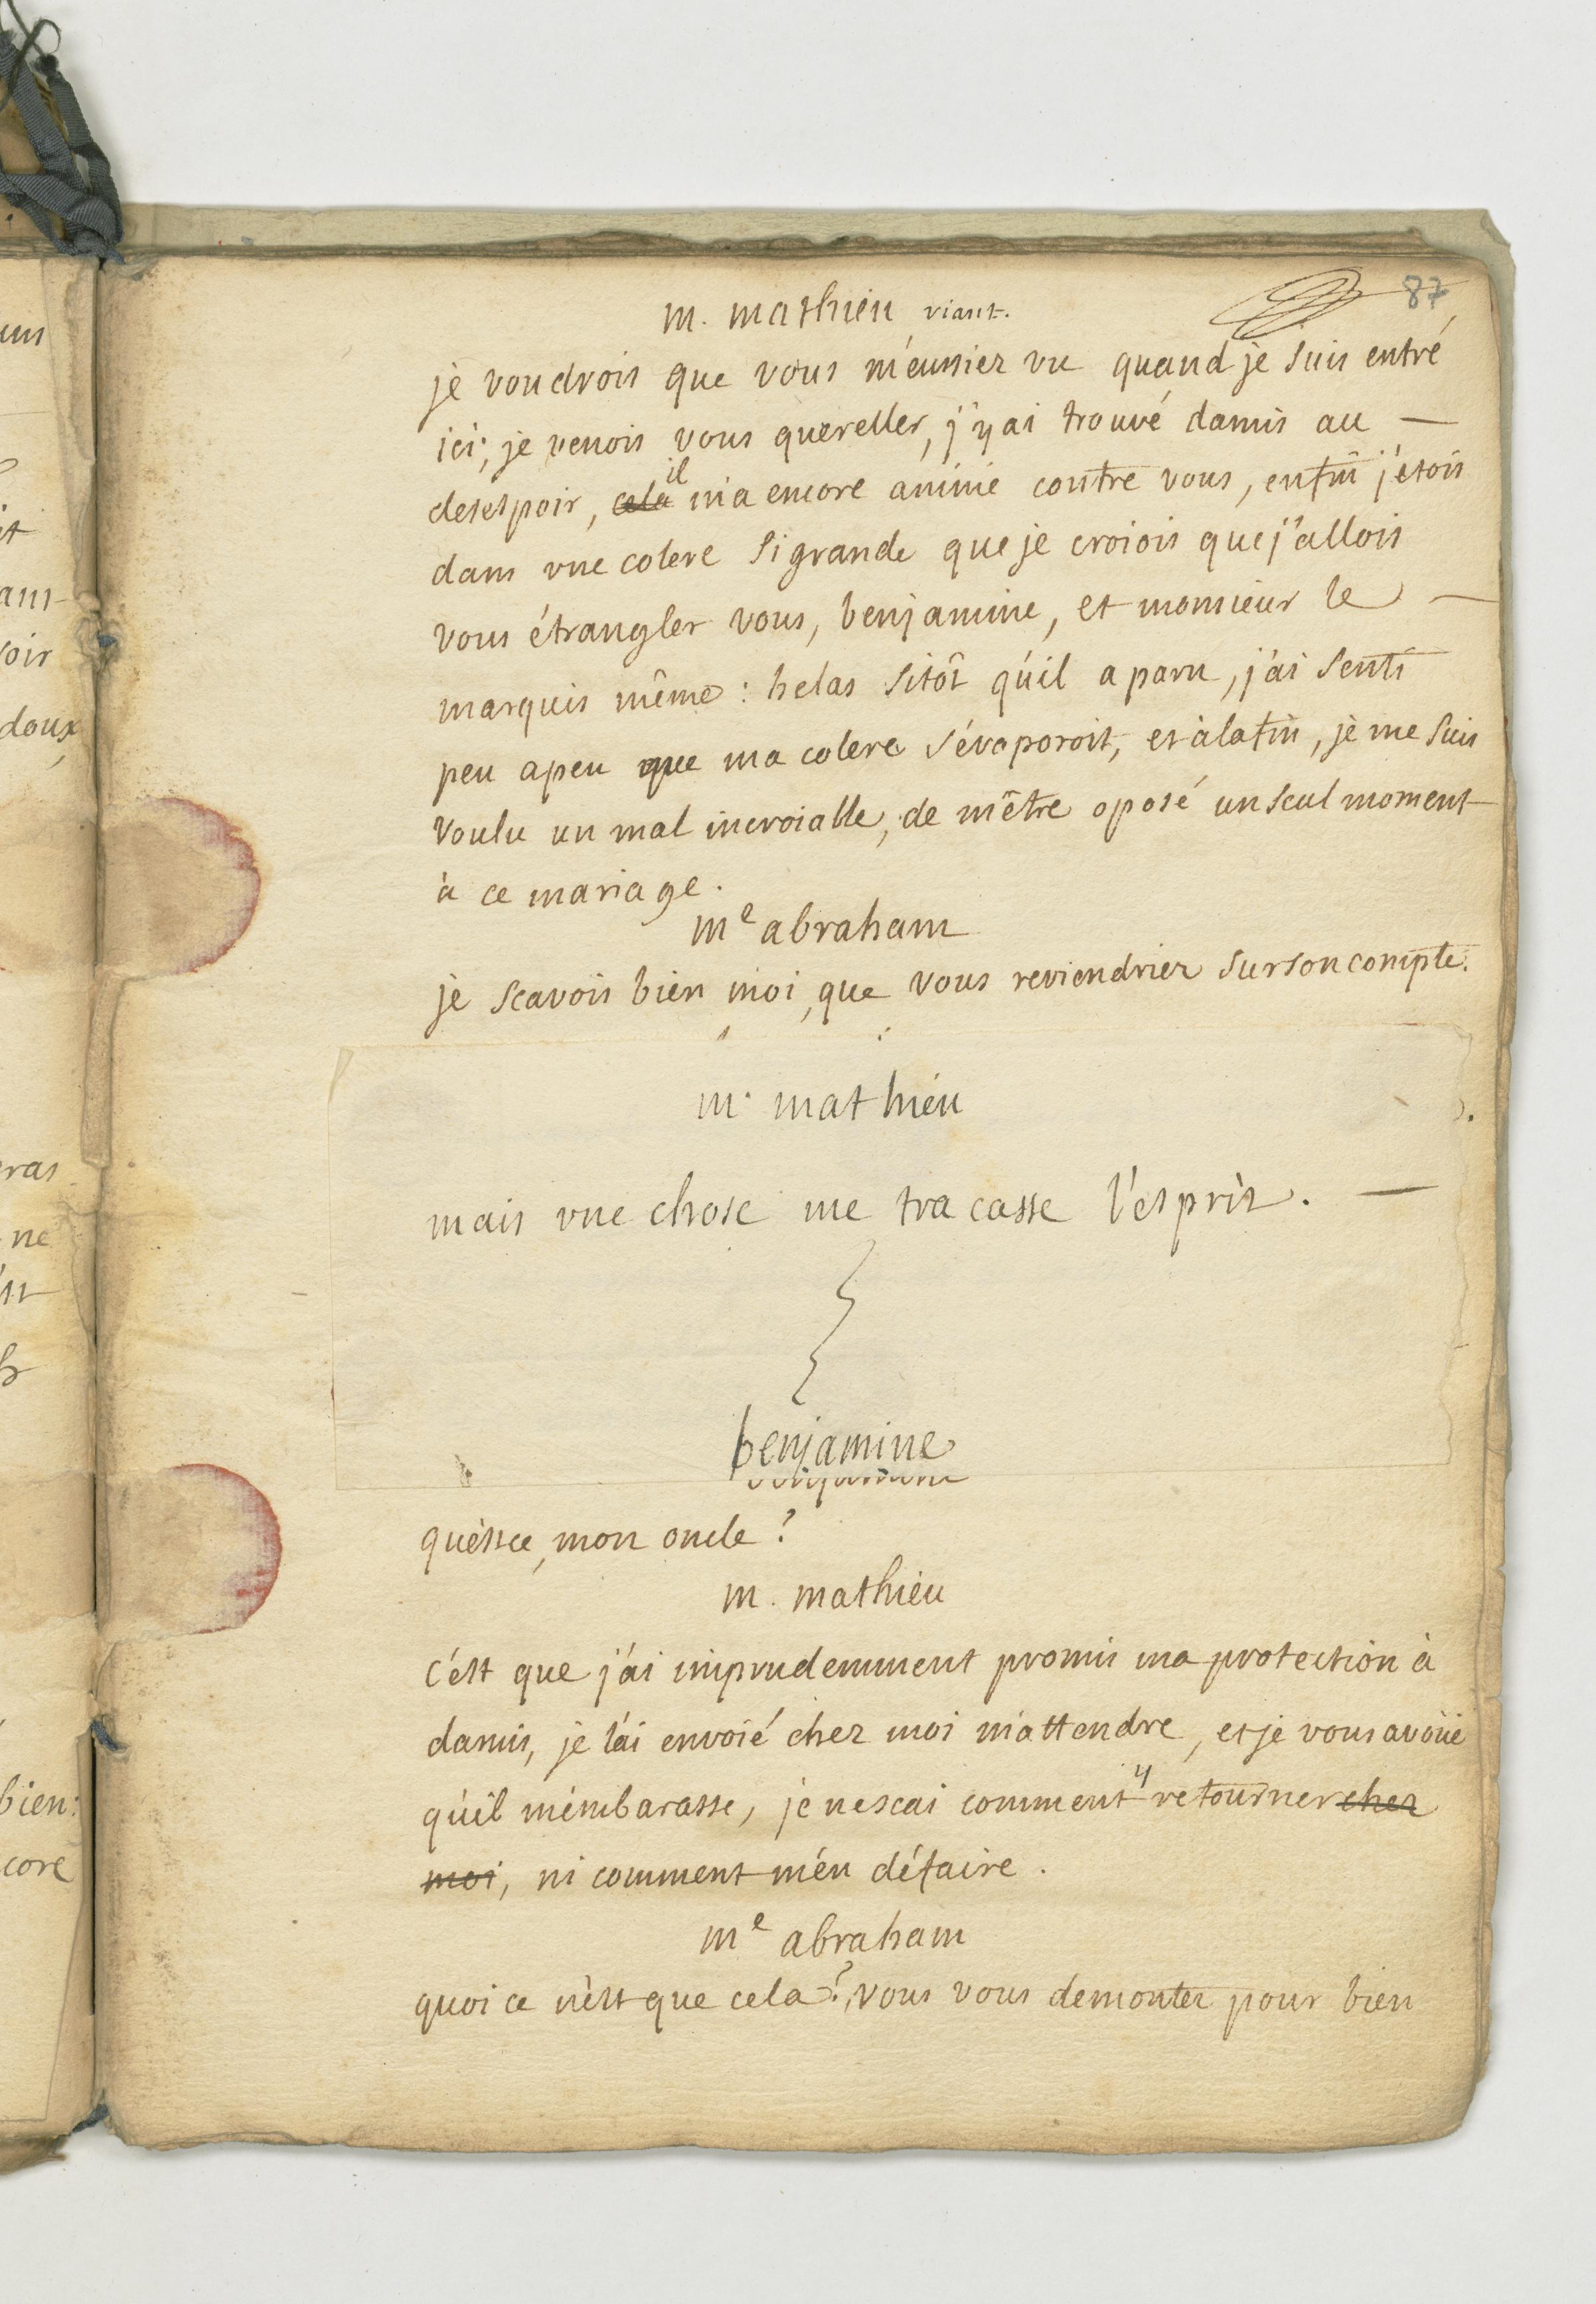 87
m. mathieu riant.
je voudrois que vous m'eussiez vu quand je suis entré
ici; je venois vous quereller, j'y ai trouvé damis au —
desespoir, cela il m'a encore animé contre vous, enfin j'etois
dans vne colere si grande que je croiois que j'allois
vous étrangler vous, benjamine, et monsieur le —
marquis même: helas sitôt qu'il a paru, j'ai senti
peu apeu que ma colere s'évaporoit, et à la fin, je me suis
voulu un mal incroiable, de m'être oposé un seul moment
à ce mariage.
me abraham
je scavois bien moi, que vous reviendriez sur son compte.
m. mathieu
mais vne chose me tracasse l'esprit. —
benjamine
qu'est ce, mon oncle?
m. mathieu
c'est que j'ai imprudemment promis ma protection à
damis, je l'ai envoié chez moi m'attendre, et je vous avoüe
qu'il m'embarasse, je ne scai comment y retourner chez
moi, ni comment m'en défaire.
me abraham
quoi ce n'est que cela? vous vous demontez pour bien